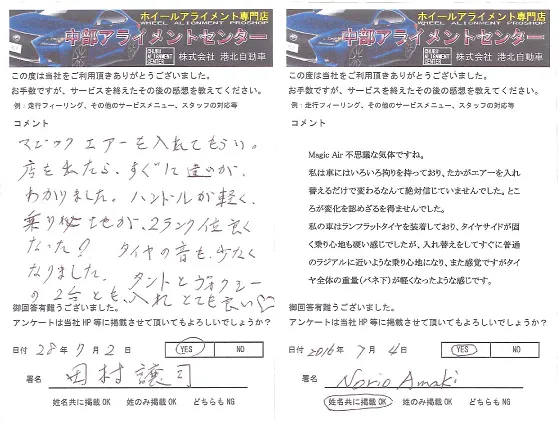 ホイールアライメント専門店
WHEEL ALIGNMENT PROSHOP
中部アライメントセンター
株式会社 港北自動車
この度は当社をご利用頂きありがとうございました。
お手数ですが、サービスを終えたその後の感想を教えてください。
例：走行フィーリング、その他のサービスメニュー、スタッフの対応等
コメント
マジックエアーを入れてもらい。
店を出たら、すぐに違のが、
わかりました。ハンドルが軽く、
乗り心地が、2ランク位良く
なった！ タイヤの音も、少なく
なりました。 タントとヴォクシー
の2台とも、入れとても良い♡
御回答有難うございました。
アンケートは当社 HP 等に掲載させて頂いてもよろしいでしょうか？
日付 28年 7月 2日 YES NO
署名 田村 譲司
姓名共に掲載 OK 姓のみ掲載 OK どちらも NG
ホイールアライメント専門店
WHEEL ALIGNMENT PROSHOP
中部アライメントセンター
株式会社 港北自動車
この度は当社をご利用頂きありがとうございました。
お手数ですが、サービスを終えたその後の感想を教えてください。
例：走行フィーリング、その他のサービスメニュー、スタッフの対応等
コメント
Magic Air 不思議な気体ですね。
私は車にはいろいろ拘りを持っており、たかがエアーを入れ
替えるだけで変わるなんて絶対信じていませんでした。とこ
ろが変化を認めざるを得ませんでした。
私の車はランフラットタイヤを装着しており、タイヤサイドが固
く乗り心地も硬い感じでしたが、入れ替えをしてすぐに普通
のラジアルに近いような乗り心地になり、また感覚ですがタイ
ヤ全体の重量（バネ下）が軽くなったような感じです。
御回答有難うございました。
アンケートは当社 HP 等に掲載させて頂いてもよろしいでしょうか？
日付 2016年 7月 4日 YES NO
署名 Norio Amaki
姓名共に掲載 OK 姓のみ掲載 OK どちらも NG